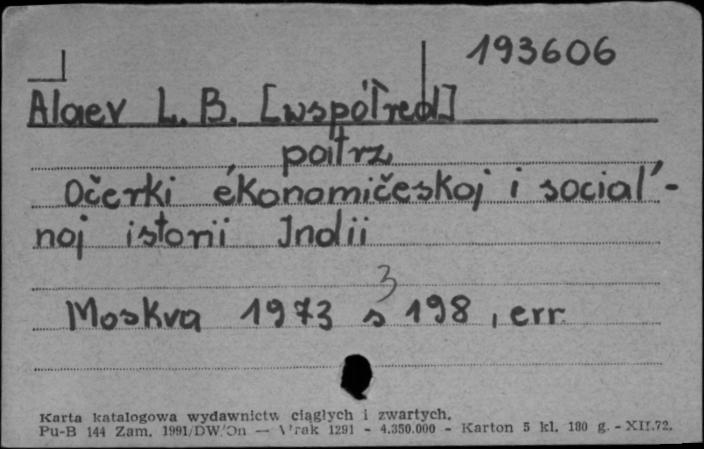 193606
Alaev L. B. [współred]
patrz
Očerki ékonomičeskoj i social'-
noj istorii Indii
3
Moskva 1973 s 198, err.
Karta katalogowa wydawnictw ciągłych i zwartych.
Pu-B 144 Zam. 1991/DW/On — 1291 - 4.350.000 - Karton 5 kl. 180 g. - XII.72.